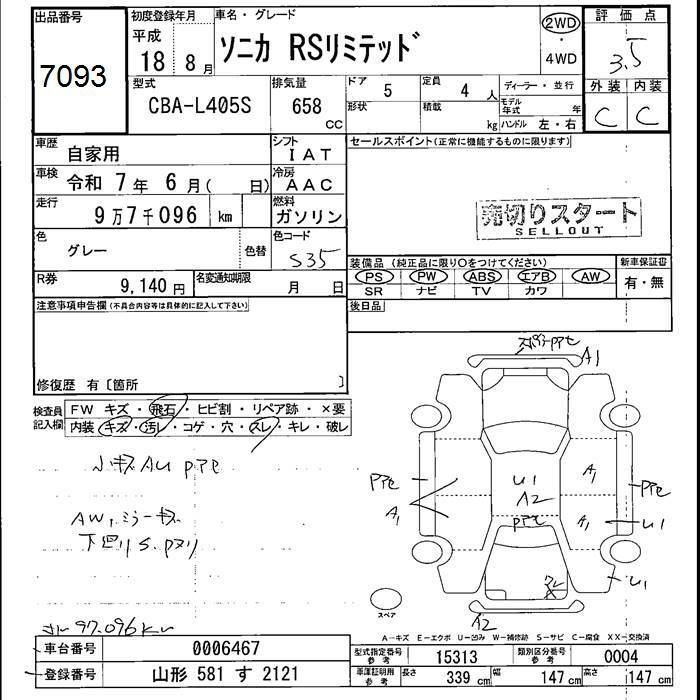 出品番号
7093
初度登録年月
平成
18 8月
車名・グレード
ソニカ RSリミテッド
2WD
・
4WD
評価点
3.5
外装 内装
C C
型式
CBA-L405S
排気量
658
CC
ドア
5
形状
定員
4 人
積載
kg
ディーラー・並行
モデル年式 年
ハンドル 左・右
車歴
自家用
シフト
IAT
車検
令和 7年 6月( 日)
冷房
AAC
走行
9万7千096 km
燃料
ガソリン
色
グレー
色替
色コード
S35
R券
9,140円
名変通知期限
月 日
セールスポイント(正常に機能するものに限ります)
売切りスタート
SELLOUT
装備品(純正品に限り○をつけてください)
PS PW ABS エアB AW
SR ナビ TV カワ
新車保証書
有・無
後日品
注意事項申告欄(不具合内容等は具体的に記入して下さい)
修復歴 有〔箇所 〕
検査員
記入欄
FW キズ・飛石・ヒビ割・リペア跡・×要
内装・キズ・汚レ・コゲ・穴・スレ・キレ・破レ
小キズAU PPセ
AW,ミラーキズ
下回りS.Pヌリ
A1
PPセ
A1
U1
A2
PPセ
A1
A1
PPセ
U1
U1
A2
スペア
97.096km
A-キズ E-エクボ U-凹み W-補修跡 S-サビ C-腐食 XX-交換済
車台番号
0006467
登録番号
山形 581 す 2121
型式指定番号
参考
15313
類別区分番号
参考
0004
車庫証明用
参考
長さ 339 cm 幅 147 cm 高さ 147 cm